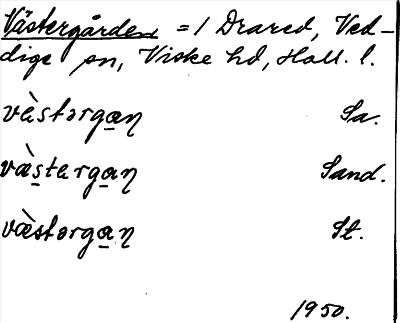 Västergården = / Drared, Ved-
dige sn, Viske hd, Hall. l.
vὲstərga̲ŋ Sa.
væ̀s̲terga̲ŋ Sand.
væ̀stərga̲ŋ St.
1950.